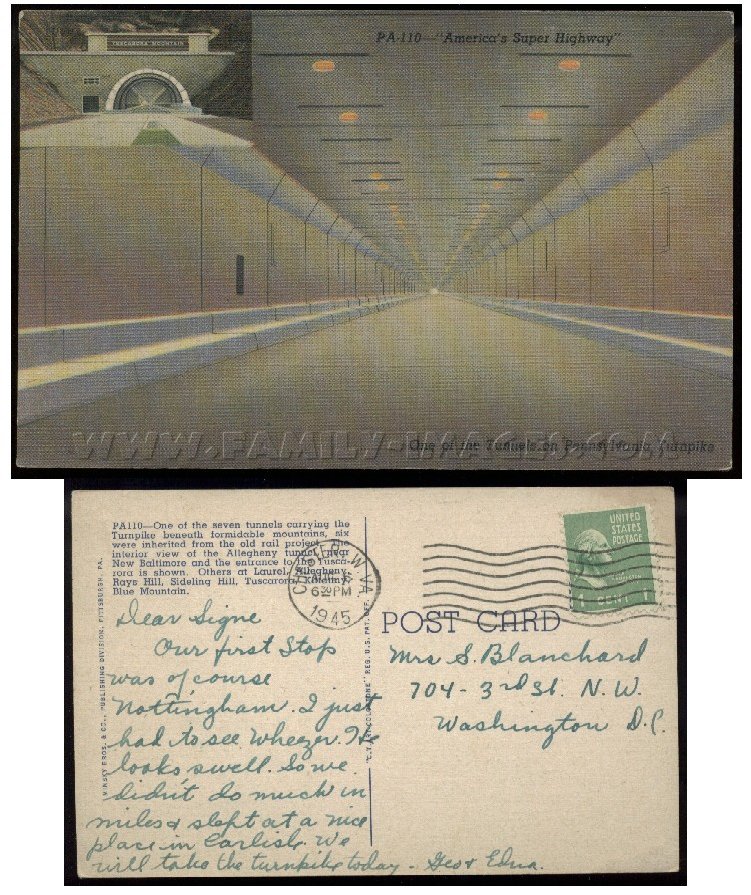 TUSCARORA MOUNTAIN
PA-110—"America's Super Highway"
WWW.FAMILY-IMAGES.COM
One of the Tunnels on Pennsylvania Turnpike
PA110—One of the seven tunnels carrying the
Turnpike beneath formidable mountains, six
were inherited from the old rail project. The
interior view of the Allegheny tunnel near
New Baltimore and the entrance to the Tusca-
rora is shown. Others at Laurel, Allegheny,
Rays Hill, Sideling Hill, Tuscarora, Kittatiny,
Blue Mountain.
MINSKY BROS. & CO., PUBLISHING DIVISION, PITTSBURGH, PA.
REG. U.S. PAT. OFF.
CHESTER W. VA
6 PM
1945
UNITED
STATES
POSTAGE
1 CENT 1
POST CARD
Dear Signe
Our first Stop
was of course
Nottingham. I just
had to see Wheezer. He
looks swell. So we
didn't do much in
miles & slept at a nice
place in Carlisle. We
will take the turnpike today - Geo & Edna.
Mrs S. Blanchard
704 - 3rd St. N.W.
Washington D.C.